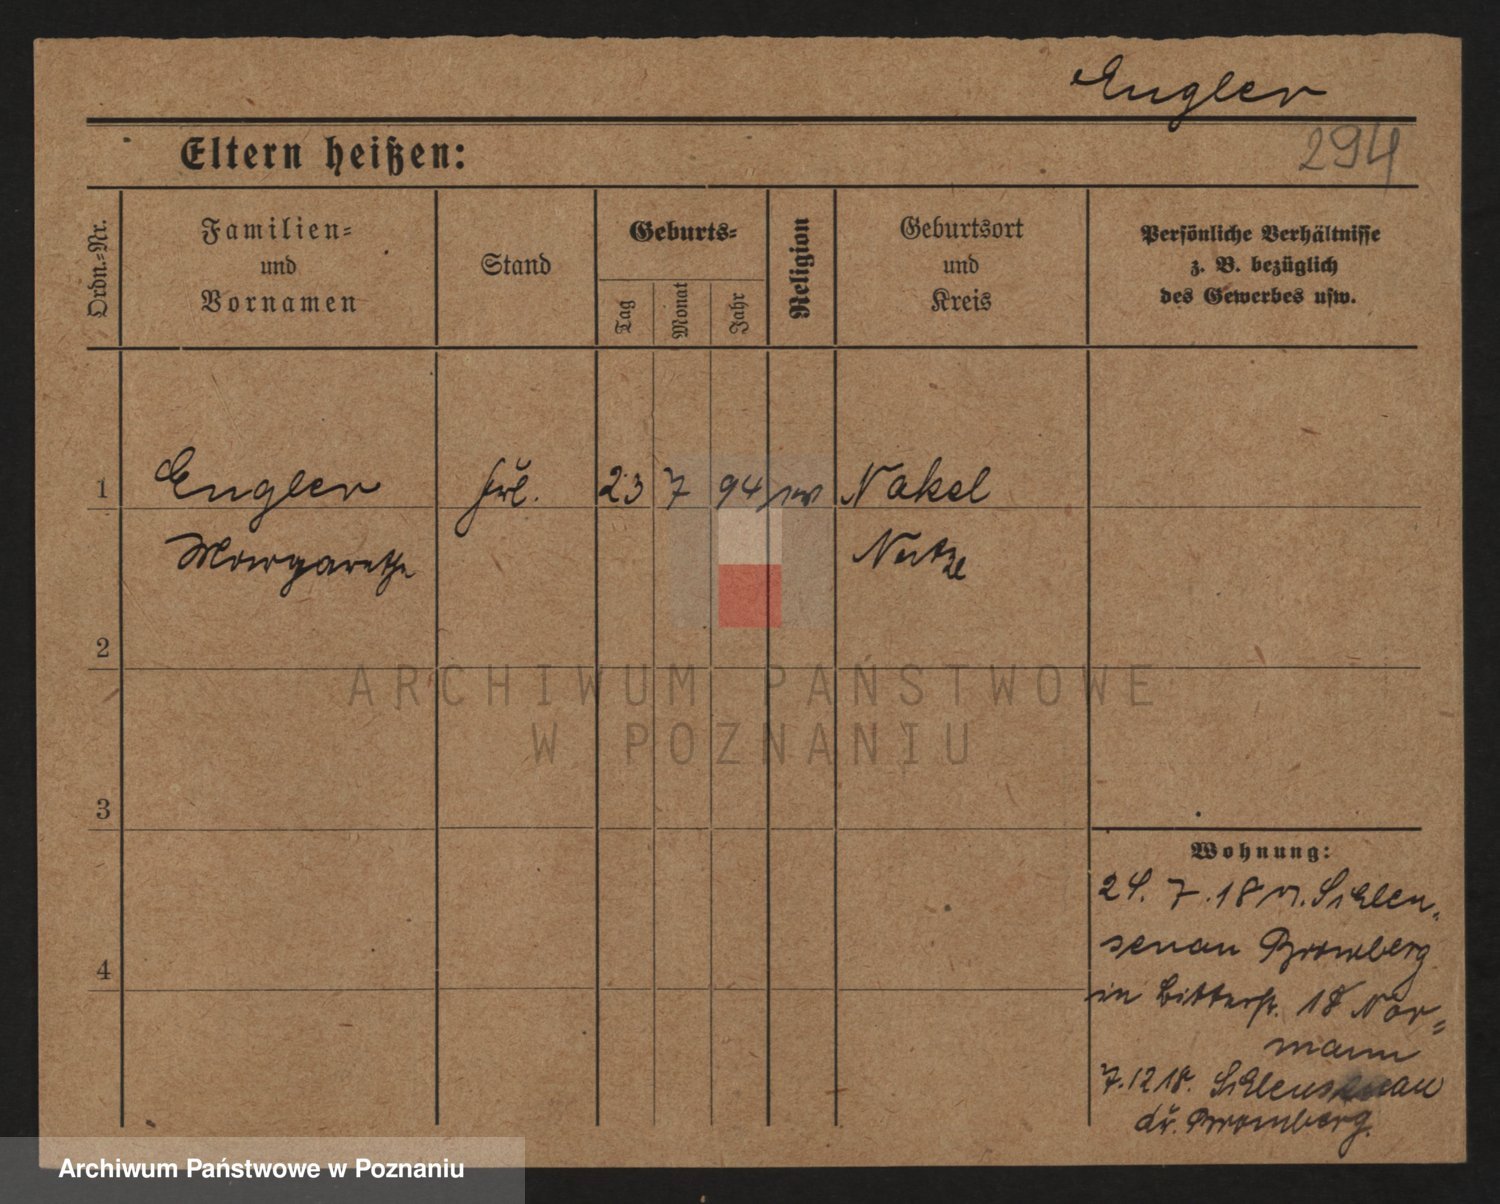 Engler
294
Eltern heißen:
Ordn.-Nr.
Familien-
und
Vornamen
Stand
Geburts-
Tag
Monat
Jahr
Religion
Geburtsort
und
Kreis
Persönliche Verhältnisse
z. B. bezüglich
des Gewerbes usw.
1 Engler frl. 23 7 94 ev Nakel
Margarethe Netze
2
ARCHIWUM PAŃSTWOWE
W POZNANIU
3
Wohnung:
24. 7. 18 v. Schleu-
senau Bromberg
in Bitterstr. 18
mann
4
7.12 18. Schleusenau
Bromberg.
Archiwum Państwowe w Poznaniu